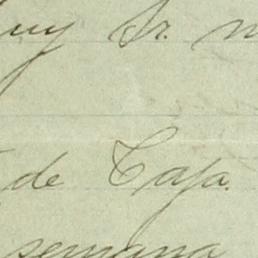 uy Sr. m
de Caja.
semana